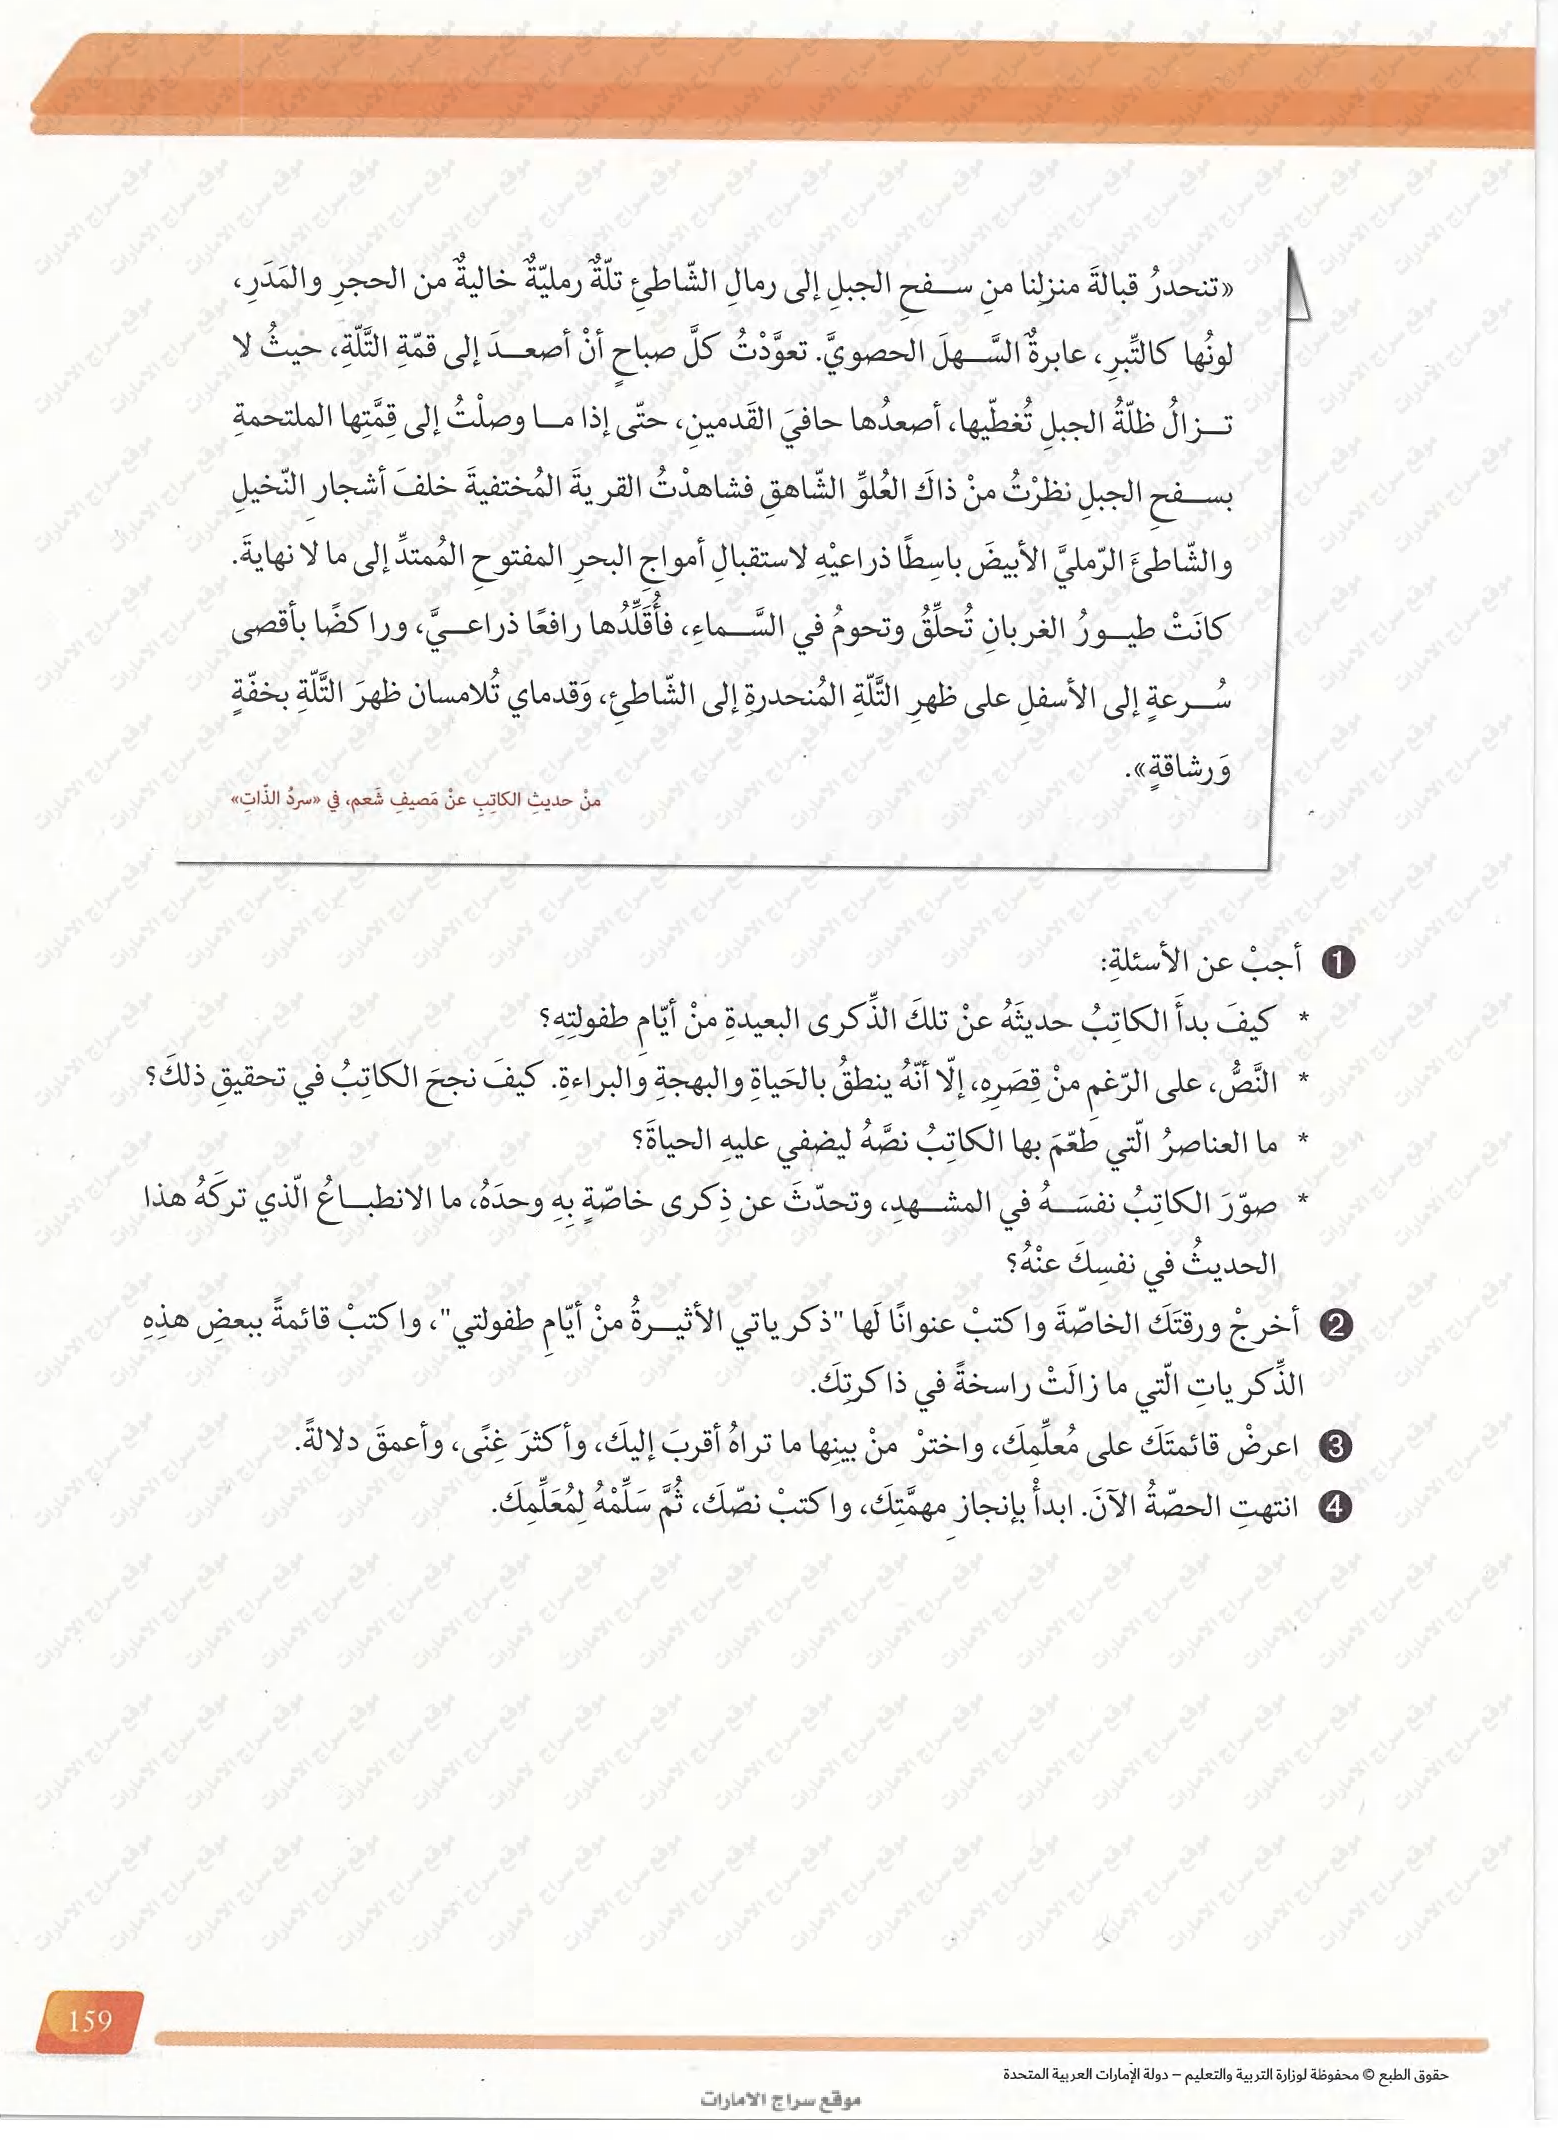 «تنحدرُ قبالةَ منزلِنا منِ سفحِ الجبلِ إلى رمالِ الشّاطئِ تلّةٌ رمليّةٌ خاليةٌ من الحجرِ والمَدَرِ،
لونُها كالتِّبرِ، عابرةً السَّهلَ الحصويَّ. تعوَّدْتُ كلَّ صباحٍ أنْ أصعدَ إلى قمّةِ التَّلّةِ، حيثُ لا
تزالُ ظلّةُ الجبلِ تُغطّيها، أصعدُها حافيَ القَدمينِ، حتّى إذا ما وصلْتُ إلى قِمَّتِها الملتحمةِ
بسفحِ الجبلِ نظرْتُ منْ ذاكَ العُلوِّ الشّاهقِ فشاهدْتُ القريةَ المُختفيةَ خلفَ أشجارِ النّخيلِ
والشّاطئَ الرّمليَّ الأبيضَ باسِطًا ذراعيْهِ لاستقبالِ أمواجِ البحرِ المفتوحِ المُمتدِّ إلى ما لا نهايةَ.
كانَتْ طيورُ الغربانِ تُحلِّقُ وتحومُ في السَّماءِ، فأُقَلِّدُها رافعًا ذراعيَّ، وراكضًا بأقصى
سُرعةٍ إلى الأسفلِ على ظهرِ التَّلّةِ المُنحدرةِ إلى الشّاطئِ، وَقدماي تُلامسان ظهرَ التَّلّةِ بخفّةٍ
وَرشاقةٍ».
منْ حديثِ الكاتِبِ عنْ مَصيفِ شَعم، في «سردُ الذّاتِ»
1 أجبْ عن الأسئلةِ:
* كيفَ بدأَ الكاتِبُ حديثَهُ عنْ تلكَ الذِّكرى البعيدةِ منْ أيّامِ طفولتِهِ؟
* النَّصُّ، على الرّغمِ منْ قِصَرِهِ، إلّا أنّهُ ينطقُ بالحَياةِ والبهجةِ والبراءةِ. كيفَ نجحَ الكاتِبُ في تحقيقِ ذلكَ؟
* ما العناصرُ الّتي طَعّمَ بها الكاتِبُ نصَّهُ ليضفي عليهِ الحياةَ؟
* صوّرَ الكاتِبُ نفسَهُ في المشهدِ، وتحدّثَ عن ذِكرى خاصّةٍ بِهِ وحدَهُ، ما الانطباعُ الّذي تركَهُ هذا
الحديثُ في نفسِكَ عنْهُ؟
2 أخرجْ ورقتَكَ الخاصّةَ واكتبْ عنوانًا لَها "ذكرياتي الأثيرةُ منْ أيّامِ طفولتي"، واكتبْ قائمةً ببعضِ هذِهِ
الذِّكرياتِ الّتي ما زالَتْ راسخةً في ذاكرتِكَ.
3 اعرضْ قائمتَكَ على مُعلِّمِكَ، واخترْ منْ بينِها ما تراهُ أقربَ إليكَ، وأكثرَ غِنًى، وأعمقَ دلالةً.
4 انتهتِ الحصّةُ الآنَ. ابدأْ بإنجازِ مهمَّتِكَ، واكتبْ نصّكَ، ثُمَّ سَلِّمْهُ لِمُعَلِّمِكَ.
159
حقوق الطبع © محفوظة لوزارة التربية والتعليم – دولة الإمارات العربية المتحدة
موقع سراج الامارات